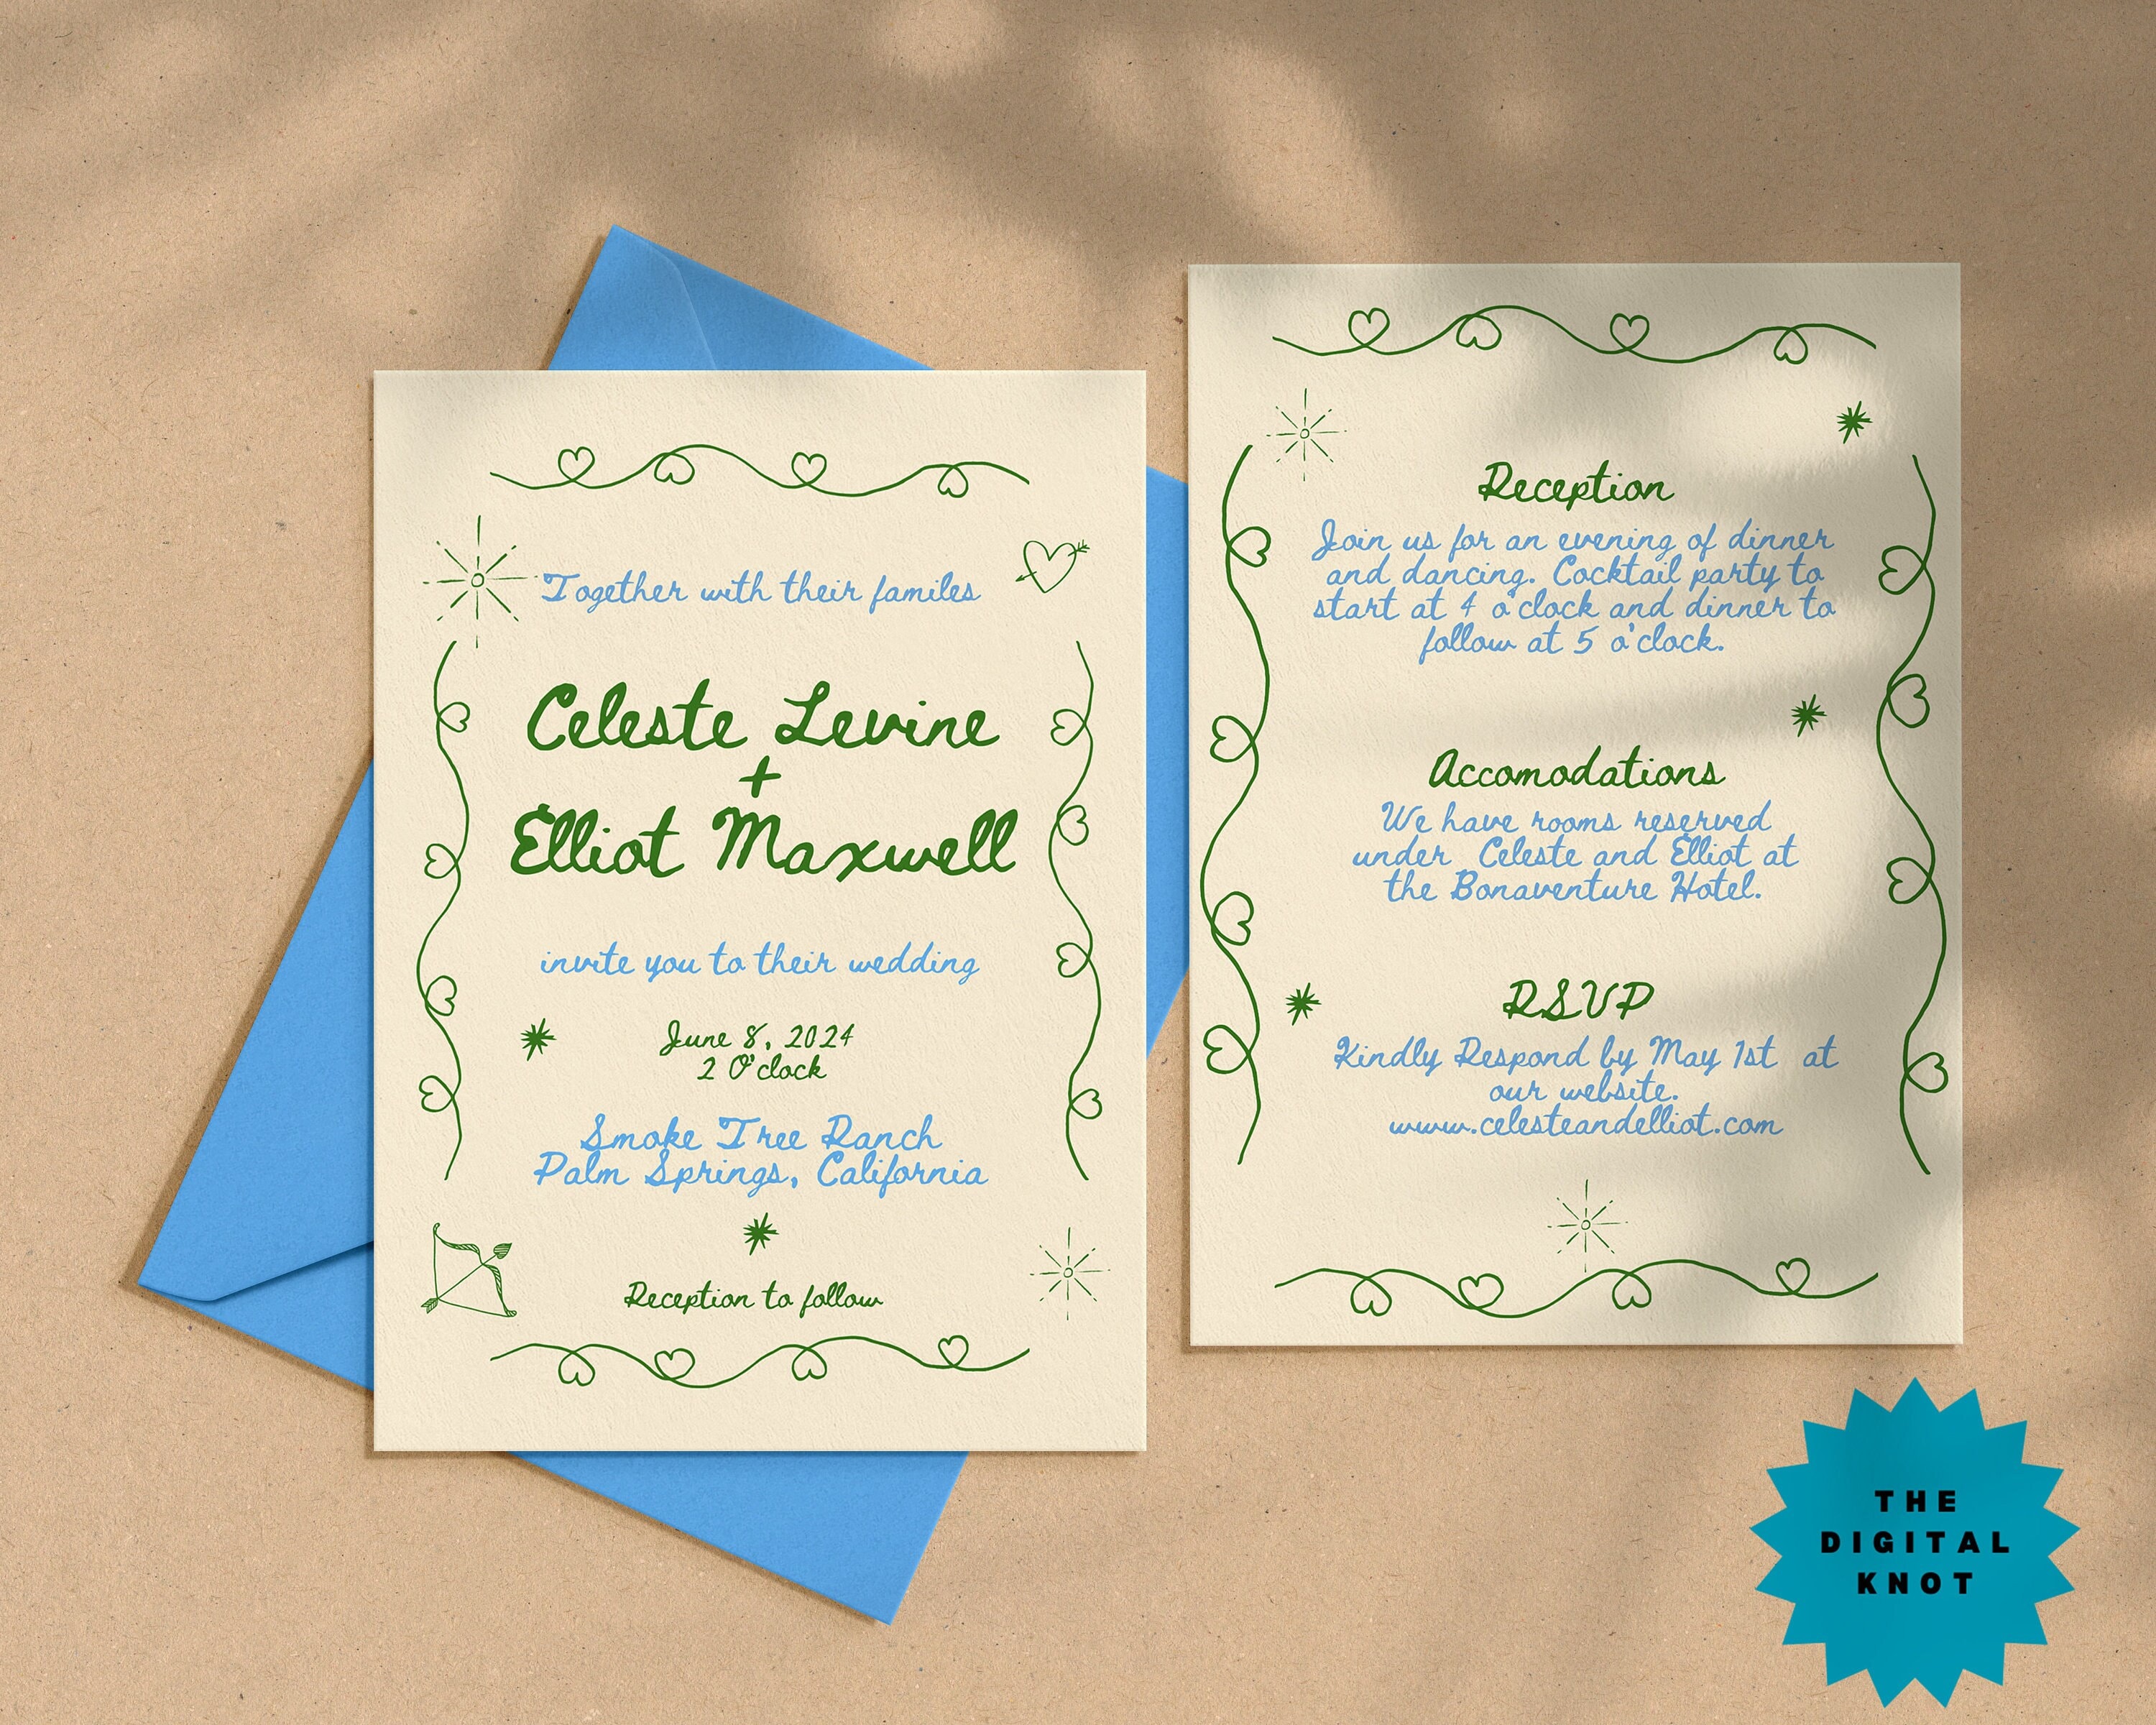 Together with their familes
Celeste Levine
+
Elliot Maxwell
invite you to their wedding
June 8, 2024
2 O'clock
Smoke Tree Ranch
Palm Springs, California
Reception to follow
Reception
Join us for an evening of dinner
and dancing. Cocktail party to
start at 4 o'clock and dinner to
follow at 5 o'clock.
Accomodations
We have rooms reserved
under Celeste and Elliot at
the Bonaventure Hotel.
RSVP
Kindly Respond by May 1st at
our website.
www.celesteandelliot.com
THE
DIGITAL
KNOT